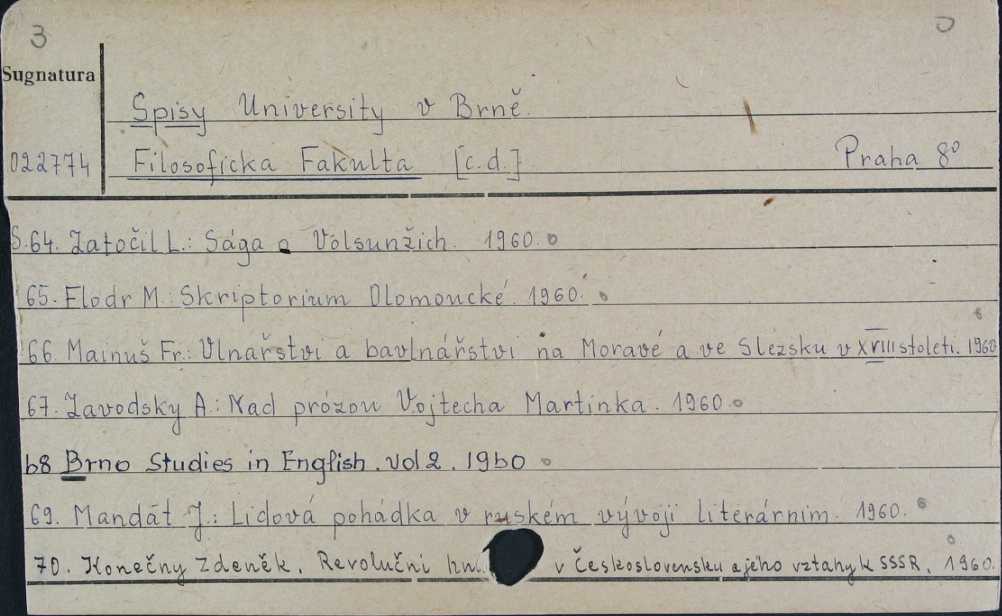 3
Sugnatura
Spisy University v Brně.
022774 Filosoficka Fakulta [c.d.] Praha 8°
S.64. Zatočil L.: Sága o Volsunžich. 1960.
65. Flodr M.: Skriptorium Olomoucké. 1960.
66. Mainuš Fr.: Vlnařstvi a bavlnářstvi na Moravé a ve Slezsku v XVIII stoleti. 1960
67. Zavodsky A.: Nad prózou Vojtecha Martinka. 1960.
68 Brno Studies in English. vol 2. 1960
69. Mandát J.: Lidová pohádka v ruském vývoji literárnim. 1960.
70. Konečny Zdeněk. Revoluční hn. v Československu a jeho vztahy k SSSR. 1960.